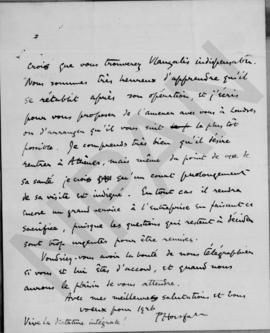 2
crois que vous trouverez Vlangalis indispensable.
Nous sommes très heureux d'apprendre qu'il
se rétablit après son opération, et j'écris
pour vous proposer de l'amener avec vous à Londres
ou d'arranger qu'il vous suit le plutôt
possible. Je comprends très bien qu'il désire
rentrer à Athènes, mais même du point de vue de
sa santé je crois qu'un court prolongement
de sa visite est indiqué. En tout cas il rendra
encore un grand service à l'entreprise en faisant ce
sacrifice, puisque les questions qui restent à décider
sont trop urgentes pour être remises.
Voudriez-vous avoir la bonté de télégraphier
si vous et lui êtes d'accord, et quand nous
aurons le plaisir de vous attendre.
Avec mes meilleures salutations et bons
voeux pour 1926
Vive la dictature intégrale!